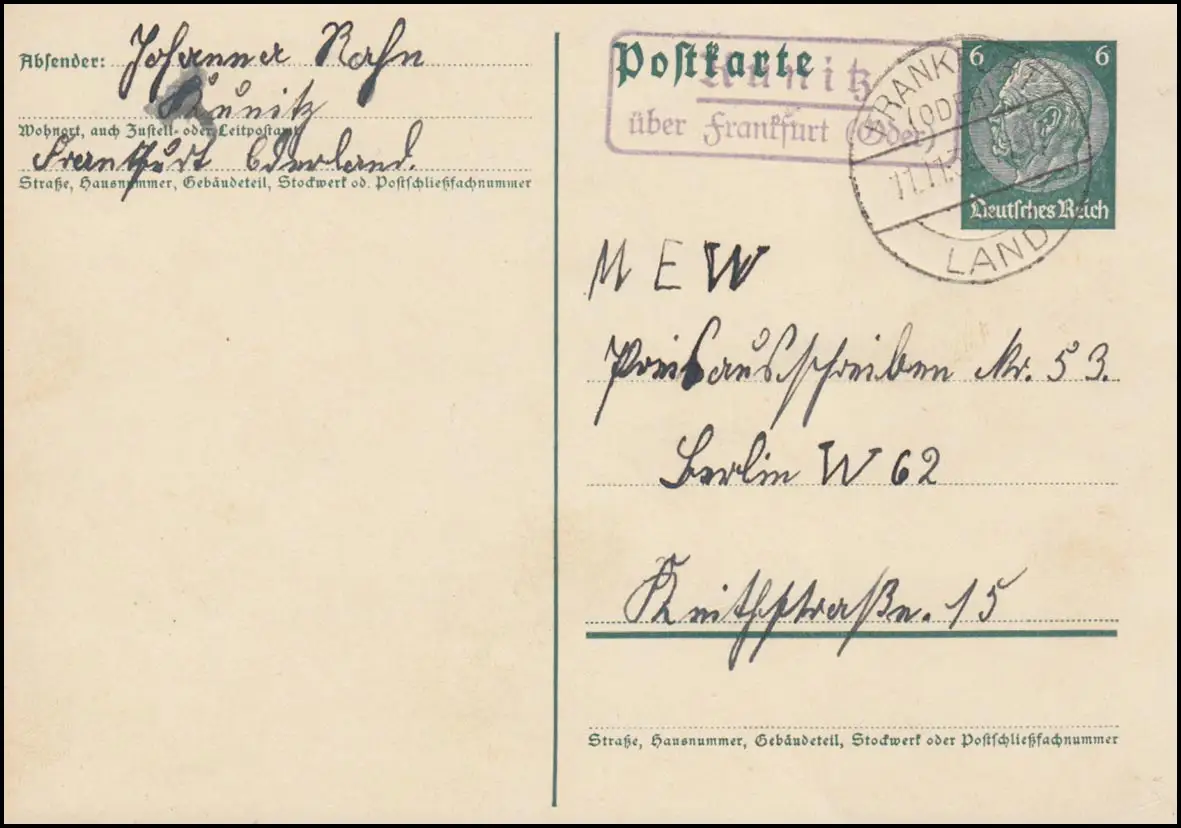 Absender: Johanna Rahn
Kunitz
Wohnort, auch Zustell- oder Leitpostamt
Frankfurt Oderland.
Straße, Hausnummer, Gebäudeteil, Stockwerk od. Postschließfachnummer
Postkarte
Kunitz
über Frankfurt (Oder)
FRANKFURT
(ODER)
11.11.3
LAND
6 6
Deutsches Reich
M E W
Preisausschreiben Nr. 53.
Berlin W 62
Keithstraße. 15
Straße, Hausnummer, Gebäudeteil, Stockwerk oder Postschließfachnummer